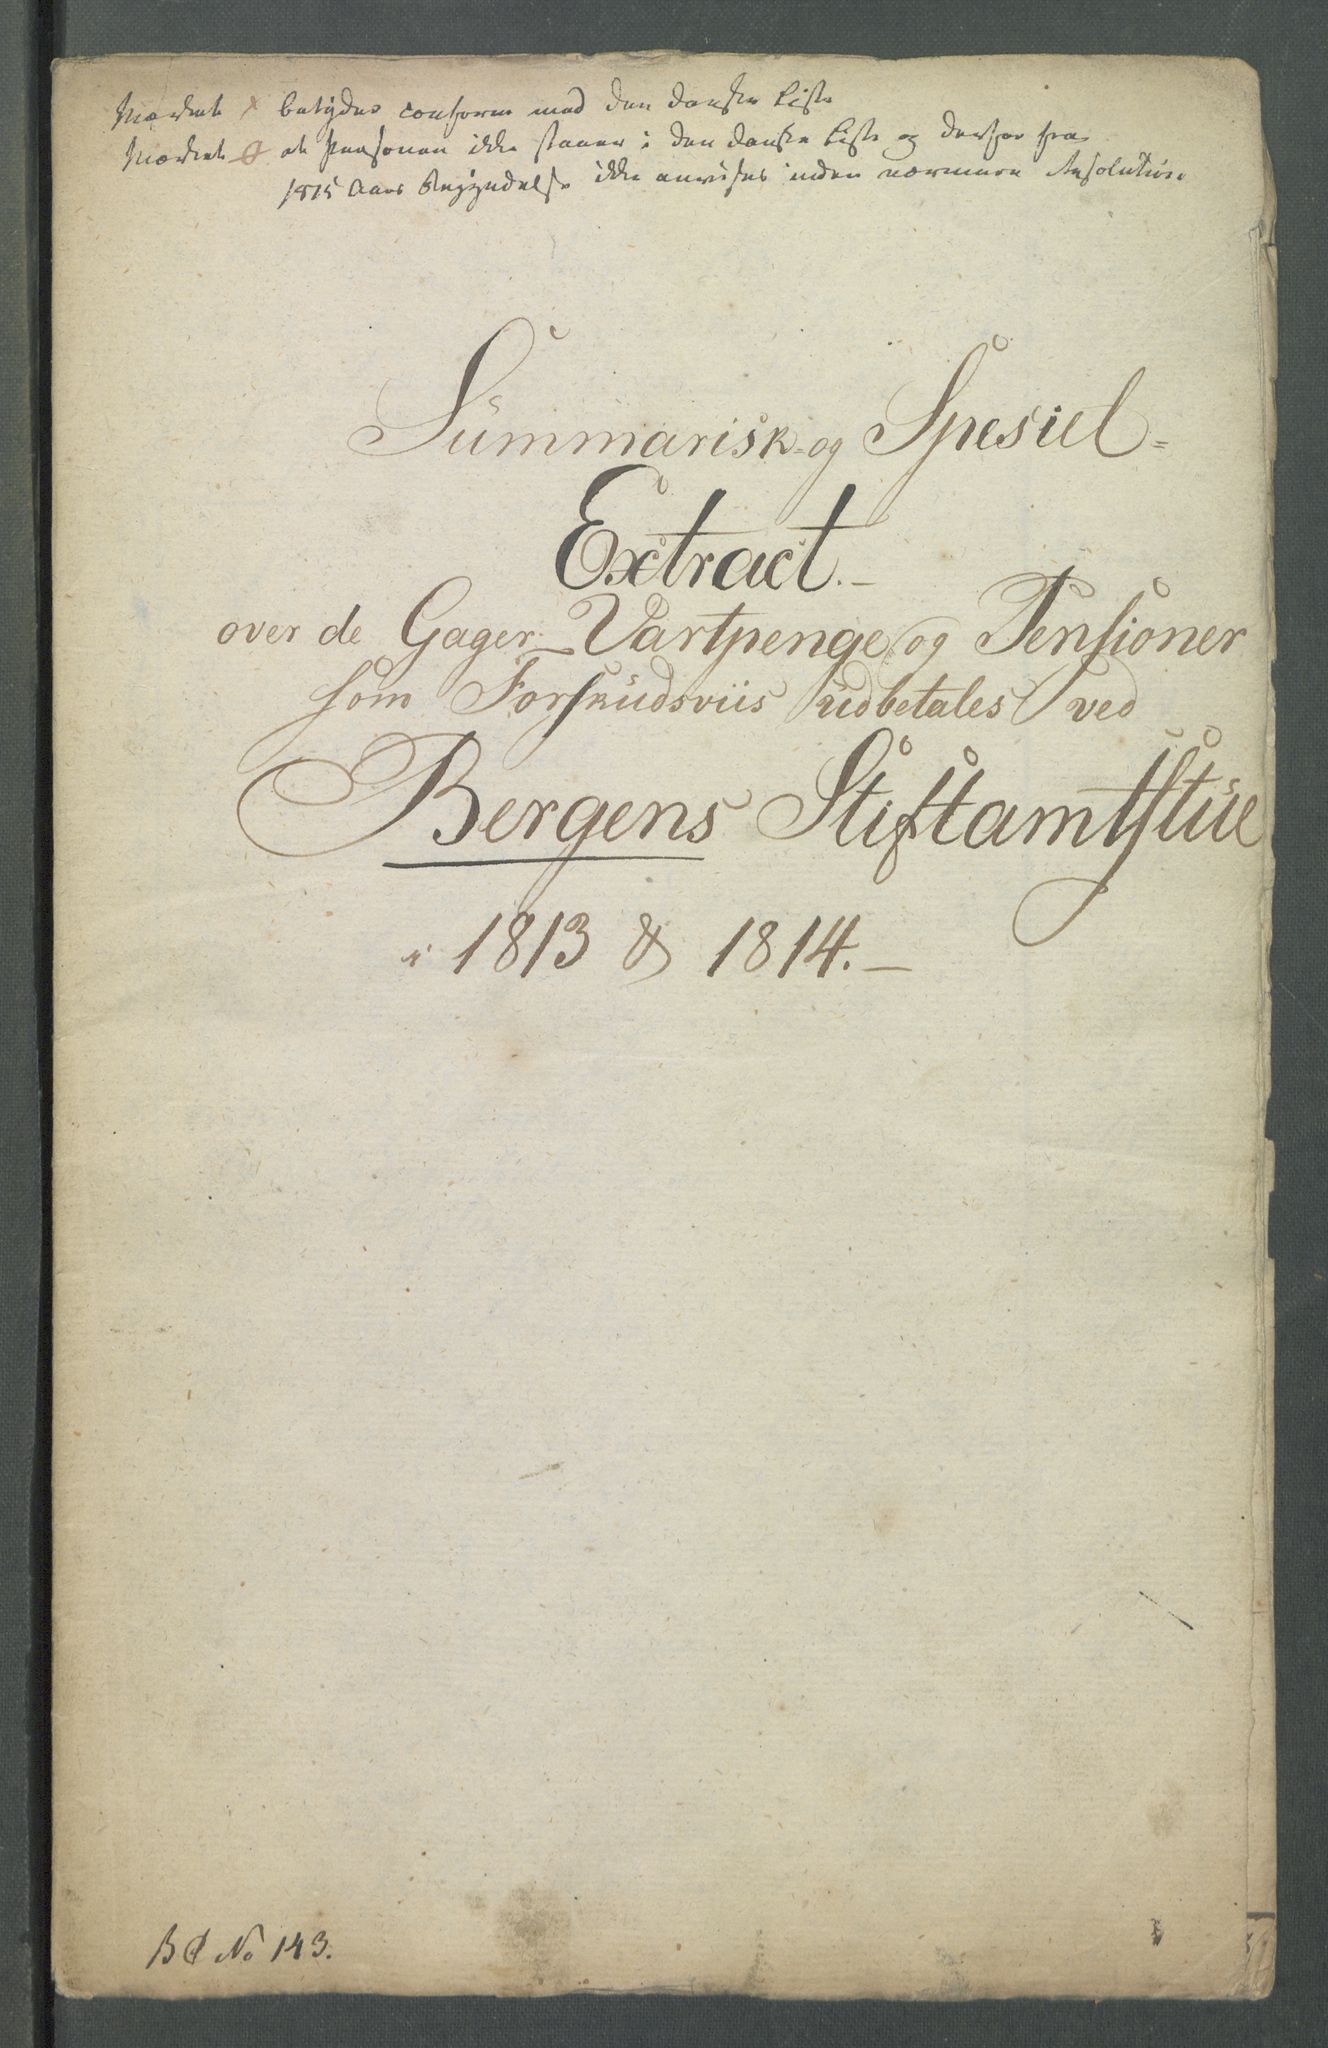 Mærket × betyder conform med den danske Liste
Mærket # at Personen ikke staaer i den danske Liste og derfor fra
1815 Aars Begyndelse ikke anvises inden nærmere Resolution.
Summarisk- og Spesiel=
Extract.—
over de Gager, Vartpenge og Pensioner
som Forskudsviis udbetales ved
Bergens StiftamtStue
i 1813 & 1814.—
No 143.